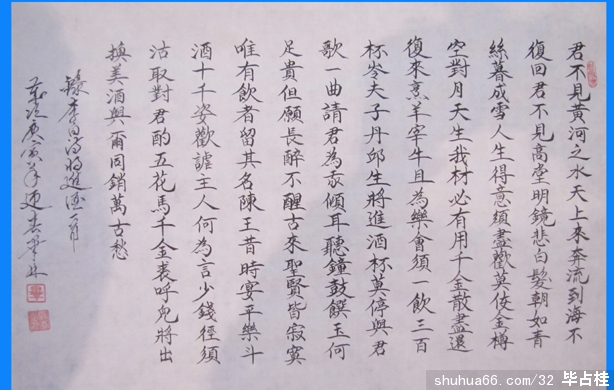 君不見黃河之水天上來奔流到海不
復回君不見高堂明鏡悲白髮朝如青
絲暮成雪人生得意須盡歡莫使金樽
空對月天生我材必有用千金散盡還
復來烹羊宰牛且為樂會須一飲三百
杯岑夫子丹邱生將進酒杯莫停與君
歌一曲請君為我傾耳聽鐘鼓饌玉何
足貴但願長醉不醒古來聖賢皆寂寞
唯有飲者留其名陳王昔時宴平樂斗
酒十千恣歡謔主人何為言少錢徑須
沽取對君酌五花馬千金裘呼兒將出
換美酒與爾同銷萬古愁
錄李白詩將進酒一首
歲次庚寅年
shuhua66.com/32 毕占桂